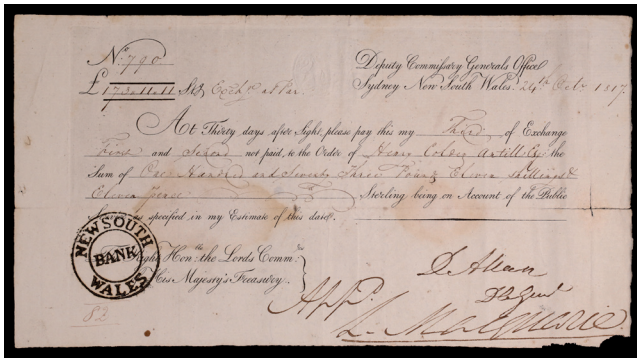 No. 790
Deputy Commissary Generals Office
£173..11..11 Stg Exche at Par.
Sydney New South Wales. 24th Octr 1817.
At Thirty days after Sight, please pay this my Third of Exchange
First and Second not paid, to the Order of Henry Colden Antill Esqr the
Sum of One Hundred and Seventy Three Pounds Eleven Shillings &
Eleven Pence Sterling being on Account of the Public
as specified in my Estimate of this date.
NEW SOUTH WALES
BANK
Right Honble the Lords Commrs
His Majesty's Treasury.
D. Allan
Appd.
L. Macquarie
83